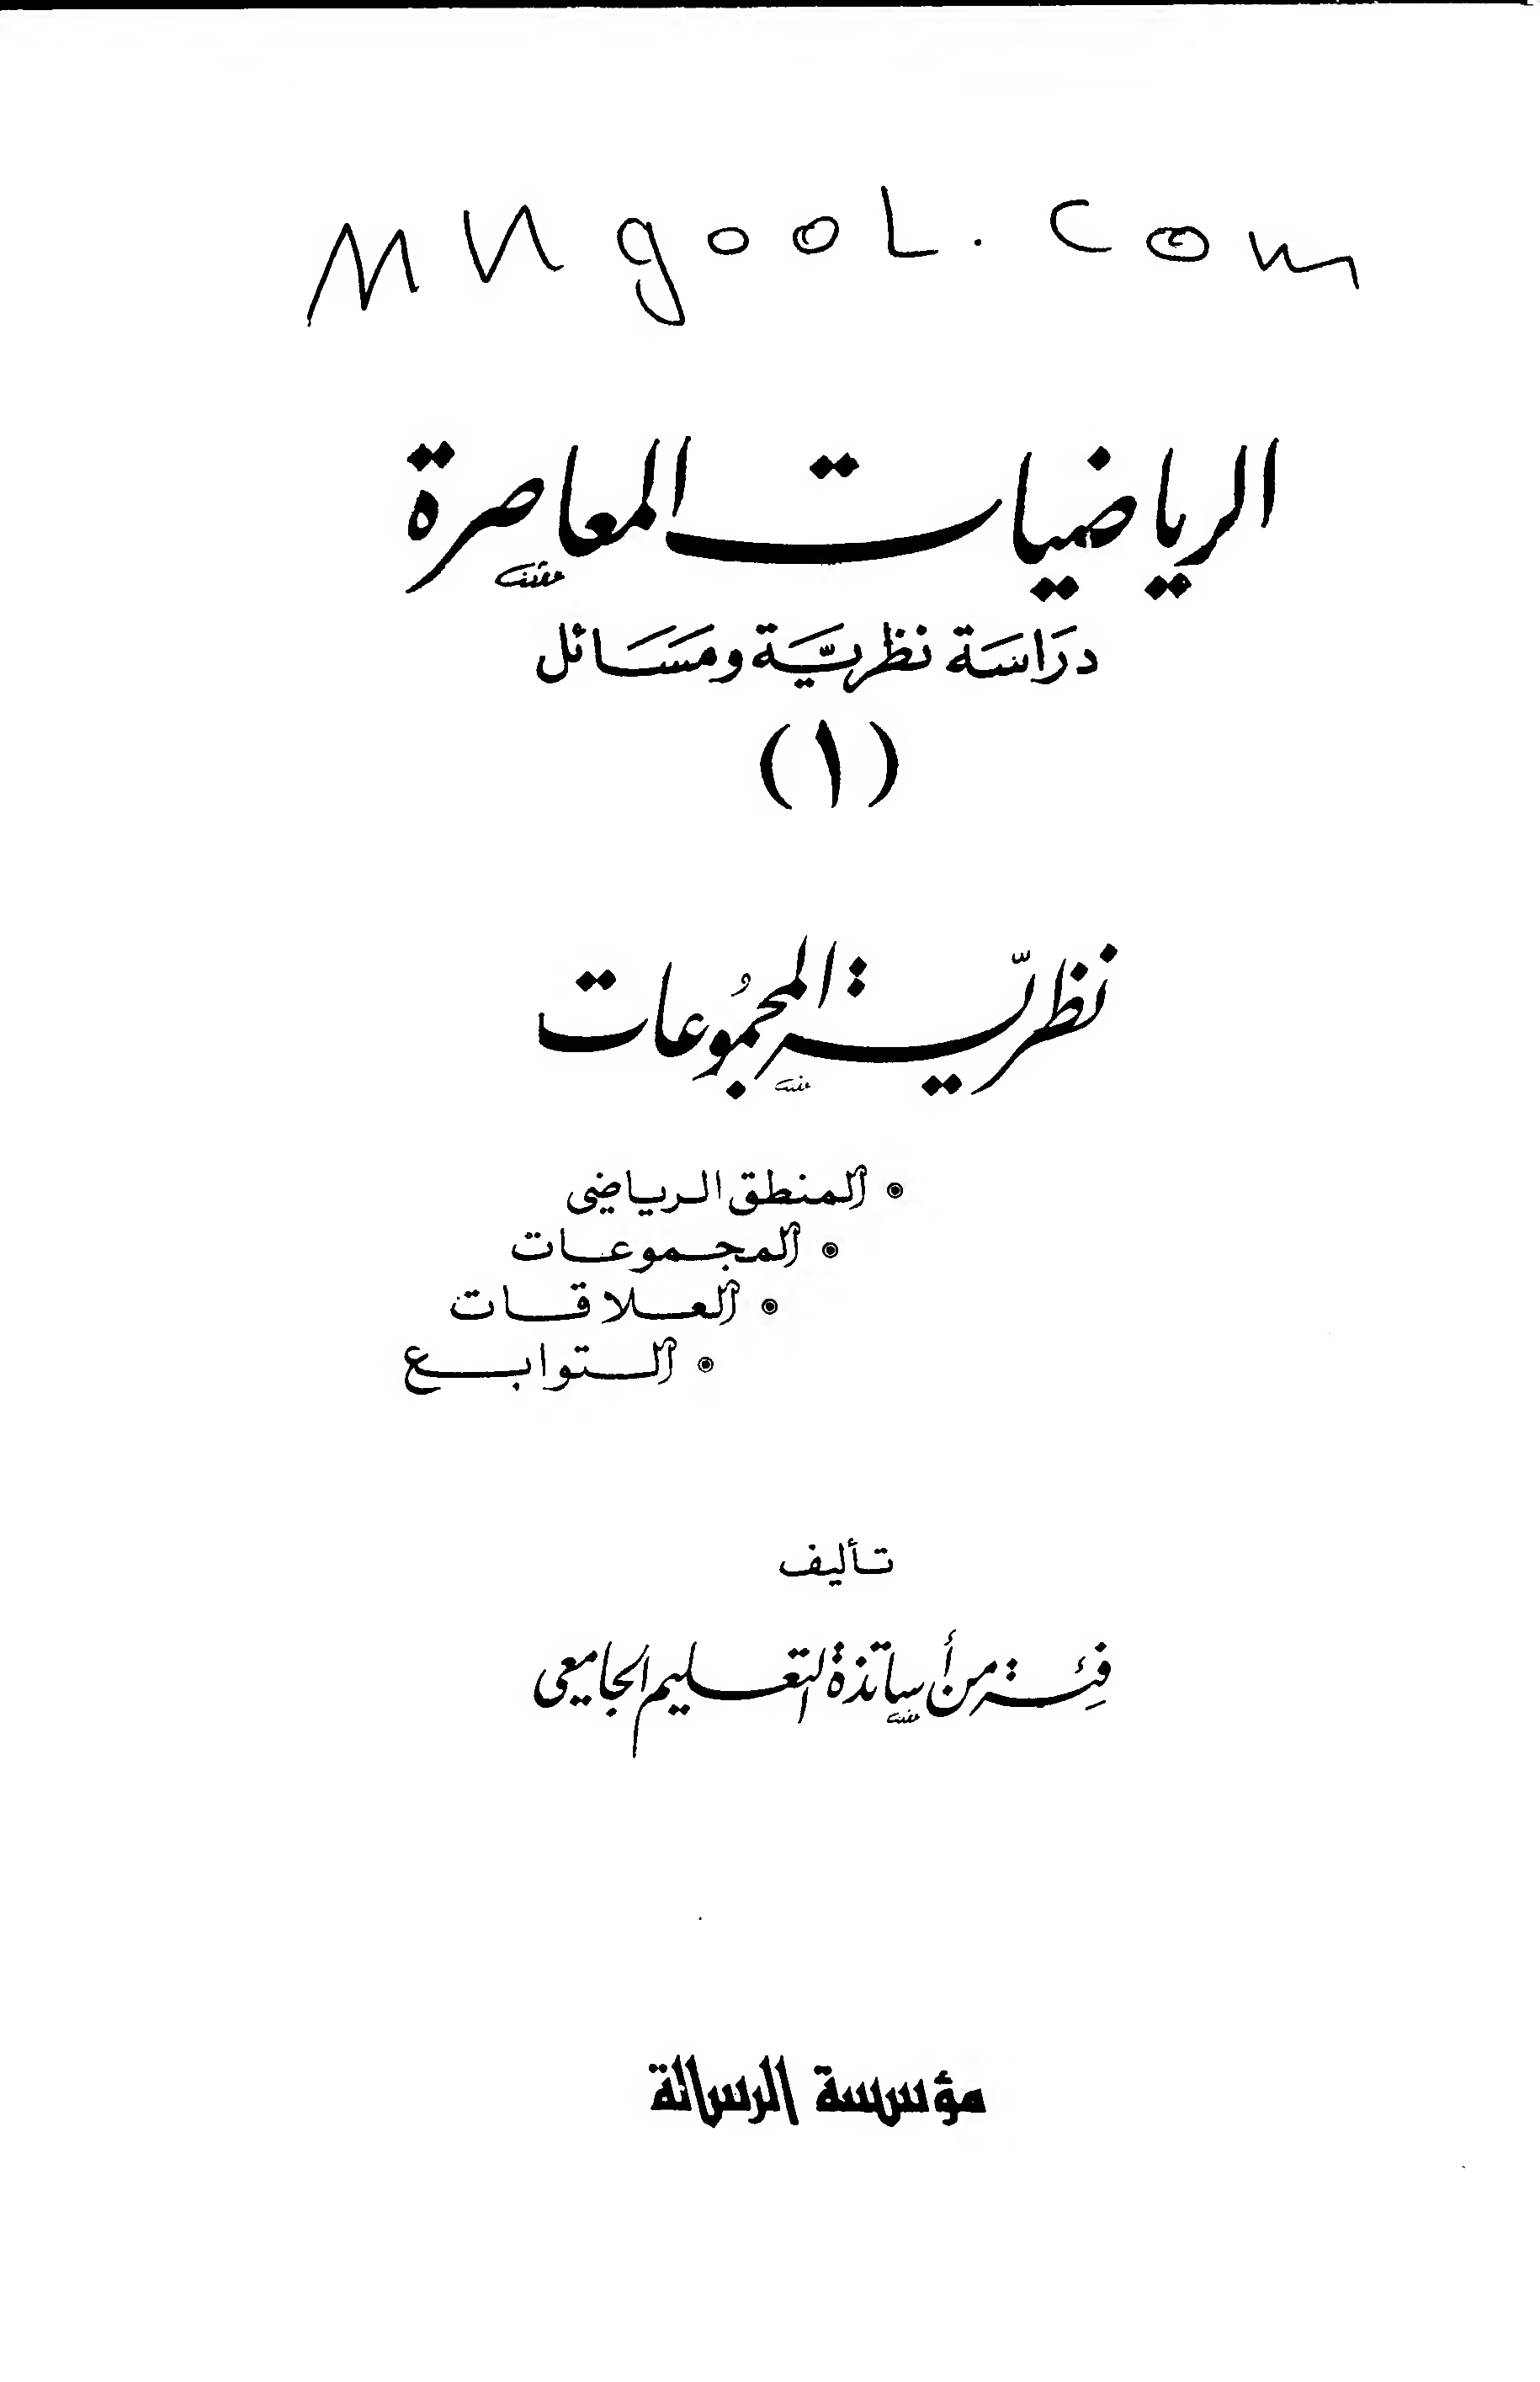 MNgooL.com
الرياضيات المعاصرة
دراسة نظرية ومسائل
(١)
نظرية المجموعات
المنطق الرياضي
المجموعات
العلاقات
التوابع
تأليف
فئة من أساتذة التعليم الجامعي
مؤسسة الرسالة